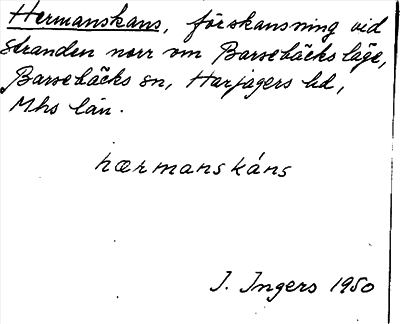 Hermanskans, förskansning vid
stranden norr om Barsebäcks läge,
Barsebäcks sn, Harjagers hd,
Mhs län.
hærmanskáns
I. Ingers 1950